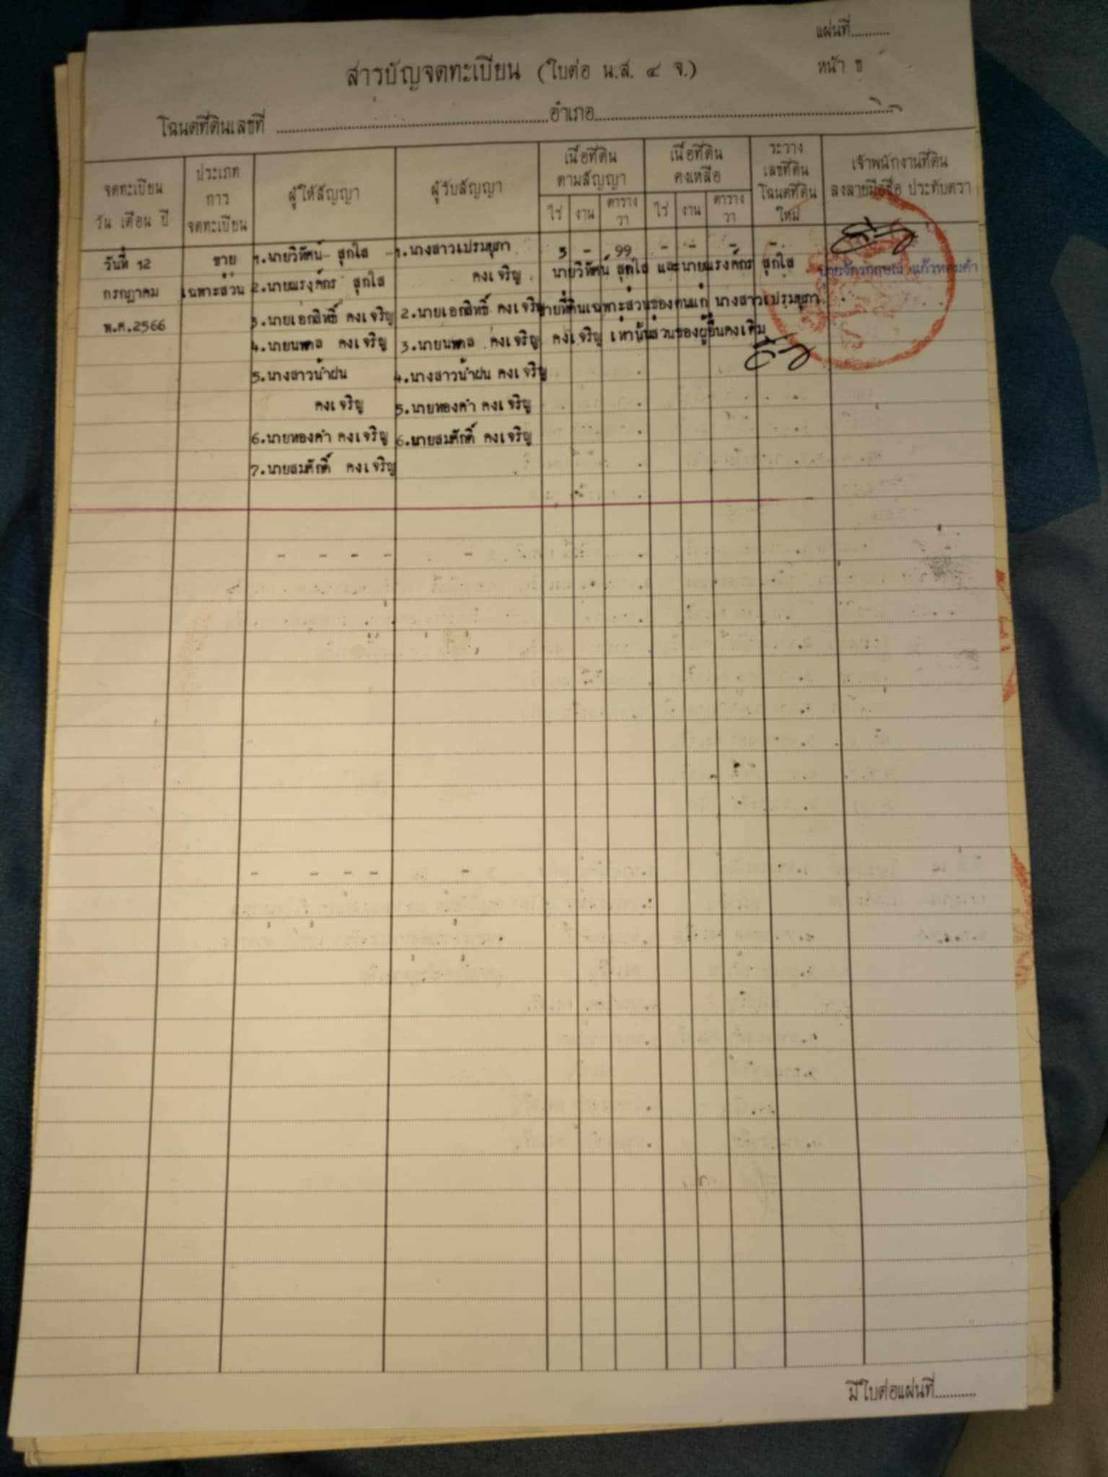 แผ่นที่..........
สารบัญจดทะเบียน (ใบต่อ น.ส. ๔ จ.)
หน้า ข
โฉนดที่ดินเลขที่ ........................ อำเภอ........................
จดทะเบียน วัน เดือน ปี
ประเภท การ จดทะเบียน
ผู้ให้สัญญา
ผู้รับสัญญา
เนื้อที่ดิน ตามสัญญา
ไร่ งาน ตาราง วา
เนื้อที่ดิน คงเหลือ
ไร่ งาน ตาราง วา
ระวาง เลขที่ดิน โฉนดที่ดิน ใหม่
เจ้าพนักงานที่ดิน ลงลายมือชื่อ ประทับตรา
วันที่ 12 ขาย 1.นายวิทัศน์ สุกใส 1.นางสาวเปรม 5 - 99 - -
กรกฎาคม เฉพาะส่วน 2.นายณรงค์กร สุกใส คงเจริญ นายวิทัศน์ สุกใส และนายณรงค์กร สุกใส
พ.ศ.2566 3.นายเอกสิทธิ์ คงเจริญ 2.นายเอกสิทธิ์ คงเจริญ ขายที่ดินเฉพาะส่วนของตนแก่ นางสาวเปรม
4.นายนพดล คงเจริญ 3.นายนพดล คงเจริญ คงเจริญ เท่านั้นส่วนของผู้อื่นคงเดิม
5.นางสาวน้ำฝน 4.นางสาวน้ำฝน คงเจริญ
คงเจริญ 5.นายทองคำ คงเจริญ
6.นายทองคำ คงเจริญ 6.นายสมศักดิ์ คงเจริญ
7.นายสมศักดิ์ คงเจริญ
มีใบต่อแผ่นที่..........